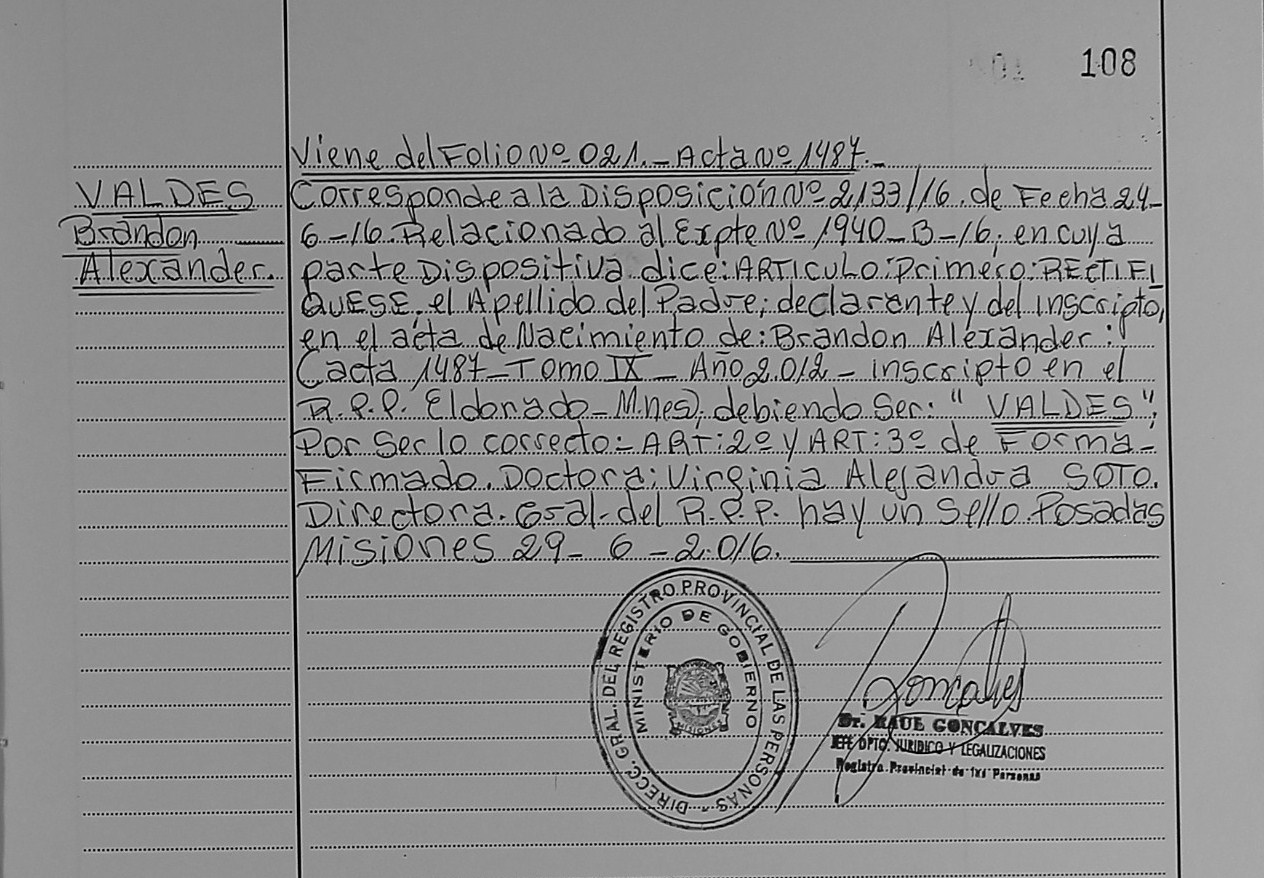 108
Viene del Folio Nº 021.- Acta Nº 1487.-
VALDES
Brandon
Alexander.
Corresponde a la Disposición Nº 2133/16. de Fecha 24-
6-16. Relacionado al Expte Nº 1940-B-16; en cuya
parte Dispositiva dice: ARTICULO: Primero: RECTIFI
QUESE. el Apellido del Padre; declarante y del inscripto,
en el acta de Nacimiento de: Brandon Alexander:
(acta 1487-Tomo IX- Año 2.012- inscripto en el
R.P.P. Eldorado-Mnes); debiendo Ser: "VALDES";
Por Ser lo correcto:- ART: 2º y ART: 3º de Forma-
Firmado. Doctora; Virginia Alejandra SOTO.
Directora. Gral. del R.P.P. hay un Sello. Posadas
Misiones 29-6-2.016.
DIRECC. GRAL. DEL REGISTRO PROVINCIAL DE LAS PERSONAS
MINISTERIO DE GOBIERNO
MISIONES
Goncalves
Dr. RAUL GONCALVES
JEFE DPTO. JURIDICO Y LEGALIZACIONES
Registro Provincial de las Personas